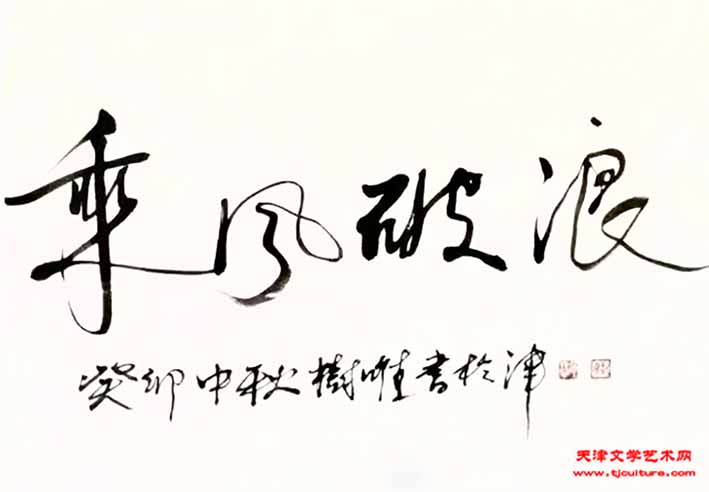 乘风破浪
癸卯中秋樹唯書於津
天津文学艺术网
www.tjculture.com